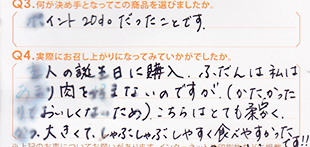 Q3.何が決め手となってこの商品を選びましたか。
ポイント20倍だったことです。
Q4.実際にお召し上がりになってみていかがでしたか。
人の誕生日に購入。ふだんは私は
肉を ないのですが、(かたかった
りでおいしくない ため)こちらはとても柔らかく、
大きくて、しゃぶしゃぶしやすく食べやすかった
です!!